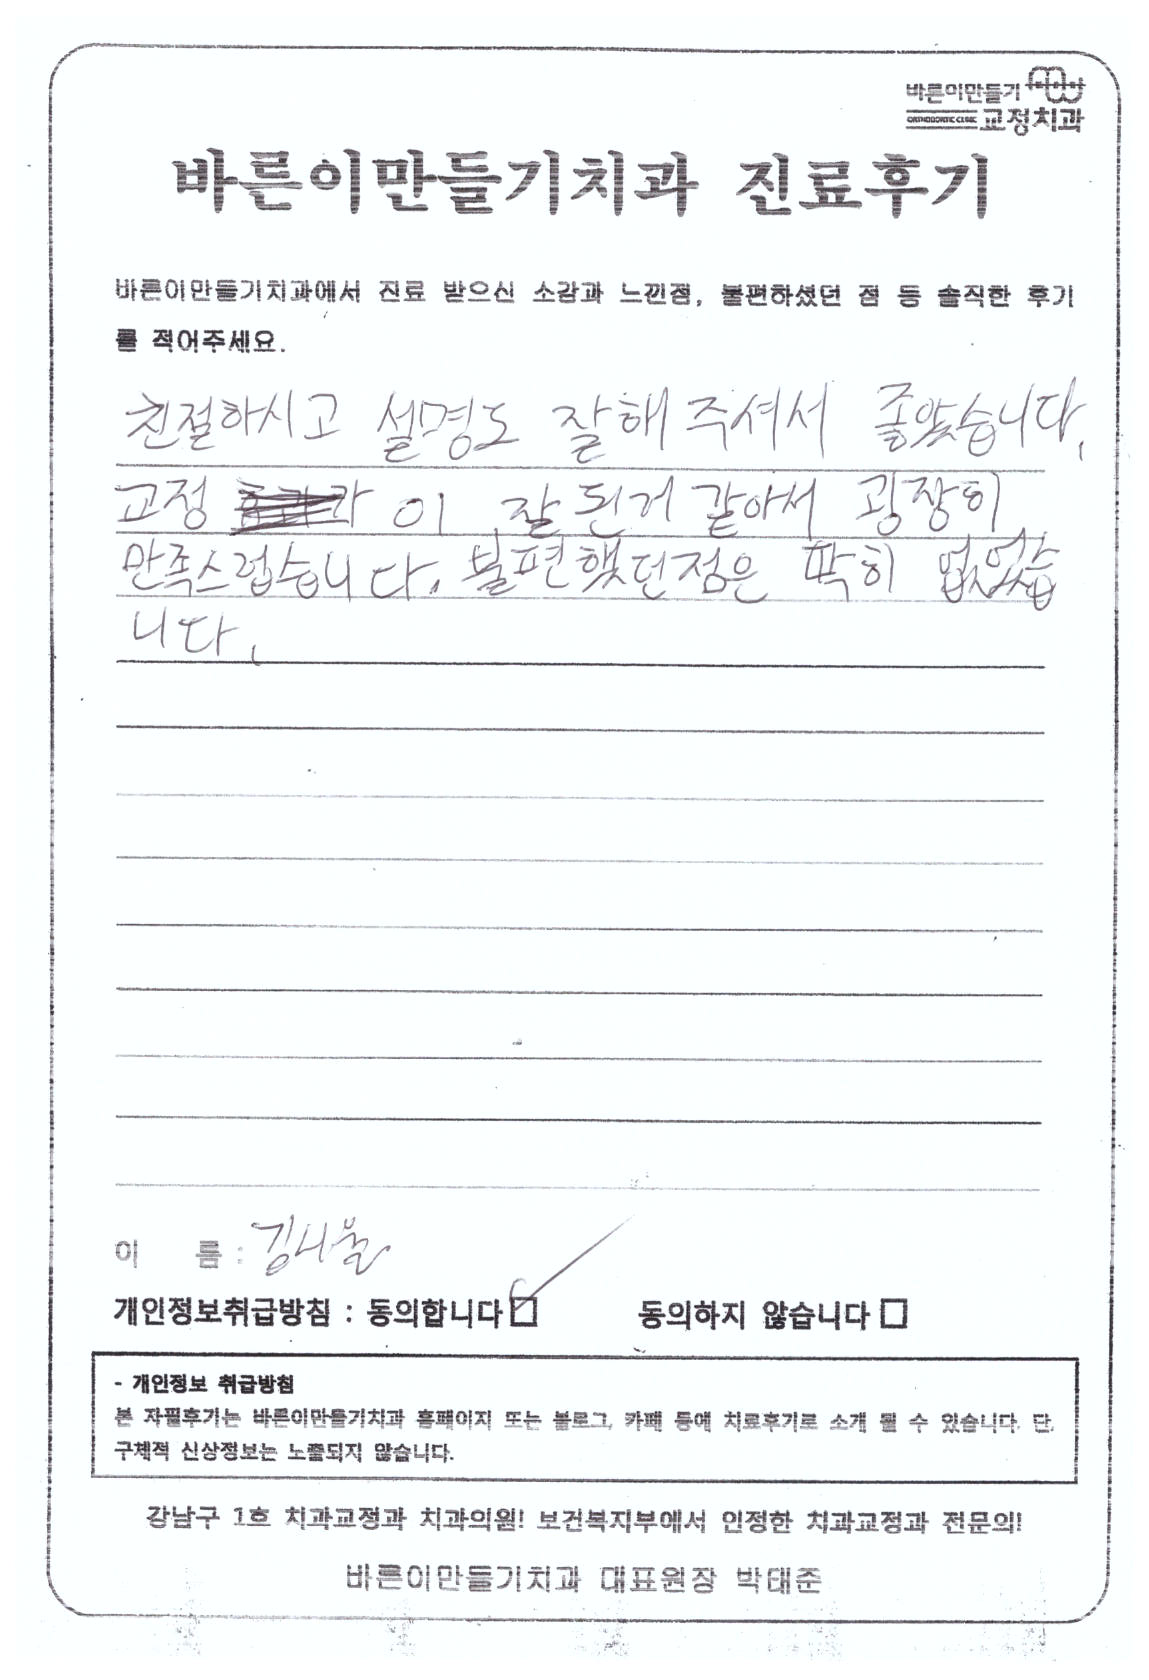 바른이만들기
ORTHODONTIC CLINIC 교정치과
바른이만들기치과 진료후기
바른이만들기치과에서 진료 받으신 소감과 느낀점, 불편하셨던 점 등 솔직한 후기
를 적어주세요.
친절하시고 설명도 잘해 주셔서 좋았습니다.
교정 이 잘 된거 같아서 굉장히
만족스럽습니다. 불편했던점은 딱히 없었습
니다.
이 름 : 김서율
개인정보취급방침 : 동의합니다 동의하지 않습니다
- 개인정보 취급방침
본 자필후기는 바른이만들기치과 홈페이지 또는 블로그, 카페 등에 치료후기로 소개 될 수 있습니다. 단,
구체적 신상정보는 노출되지 않습니다.
강남구 1호 치과교정과 치과의원! 보건복지부에서 인정한 치과교정과 전문의!
바른이만들기치과 대표원장 박태준